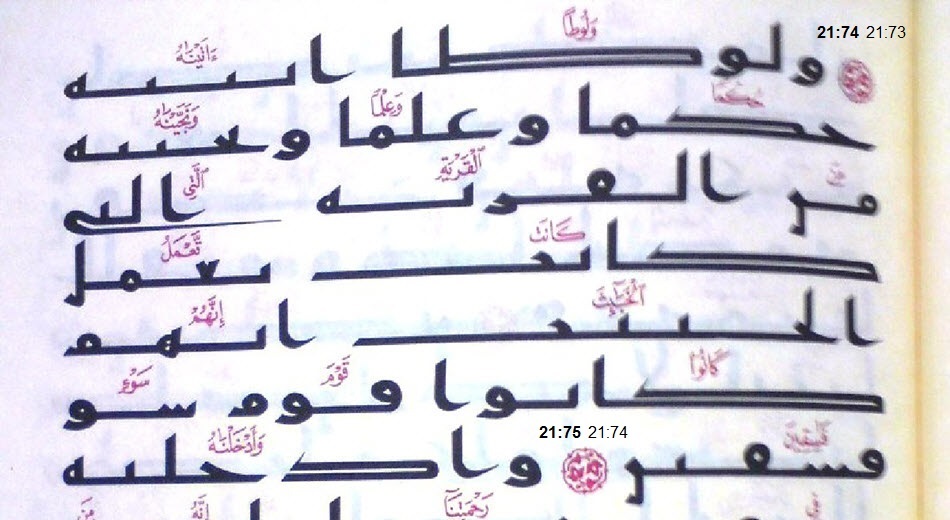 21:74 21:73
وَلُوطًا
ءَاتَيْنَٰهُ
ولوطا اتينه
حُكْمًا
وَعِلْمًا
وَنَجَّيْنَٰهُ
حكما وعلما ونجينه
مِنَ
ٱلْقَرْيَةِ
ٱلَّتِى
من القرية التى
كَانَت
تَّعْمَلُ
كانت تعمل
ٱلْخَبَٰٓئِثَ
إِنَّهُمْ
الخبيث انهم
كَانُوا۟
قَوْمَ
سَوْءٍ
كانوا قوم سو
21:75 21:74
فَٰسِقِينَ
وَأَدْخَلْنَٰهُ
فسقين وادخلنه
فِى
رَحْمَتِنَآ
إِنَّهُۥ
مِنَ